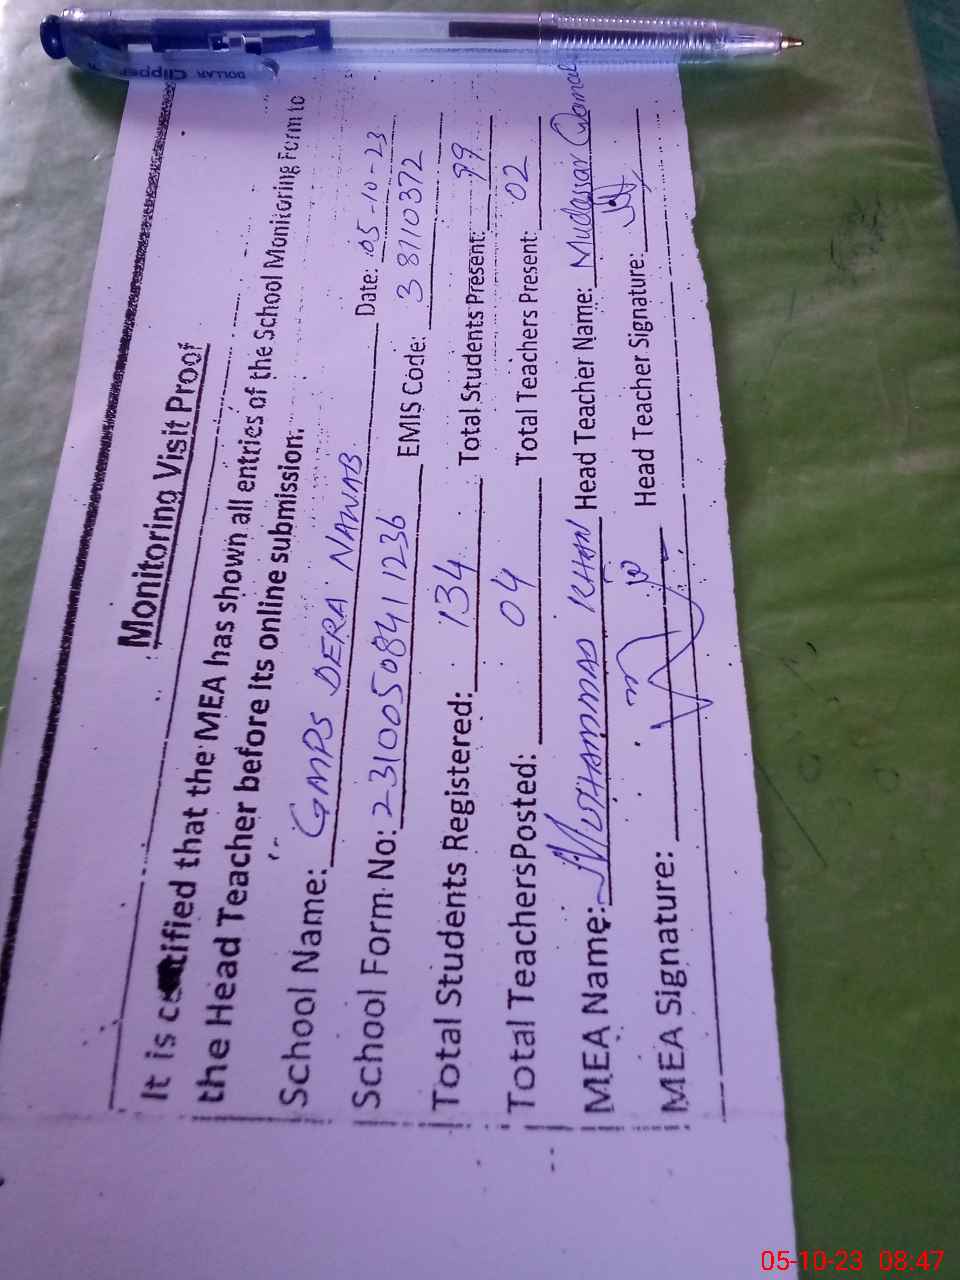 DOLLAR Clipper
Monitoring Visit Proof
It is certified that the MEA has shown all entries of the School Monitoring Form to
the Head Teacher before its online submission.
School Name: GMPS DERA NAWAB Date: 05-10-23
School Form No: 231005084 1236 EMIS Code: 38110372
Total Students Registered: 134 Total Students Present: 99
Total TeachersPosted: 04 Total Teachers Present: 02
MEA Name: MUHAMMAD KHAN Head Teacher Name: Mudassar Qamar
MEA Signature: Head Teacher Signature:
05-10-23 08:47